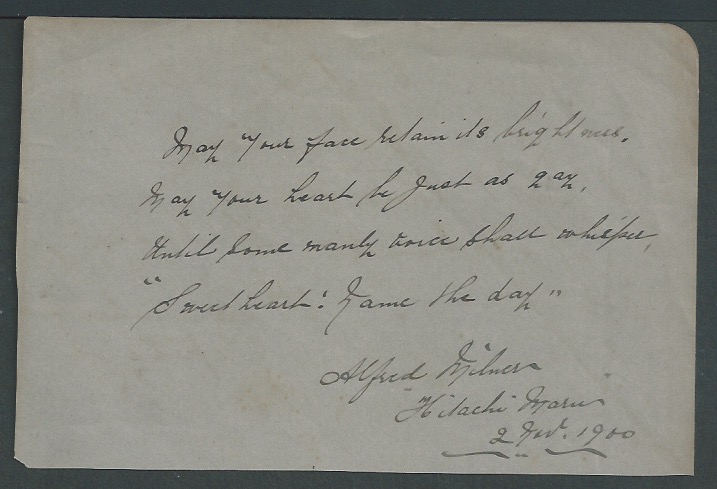 May your face retain its brightness.
May your heart be just as gay,
Until some manly voice shall whisper,
"Sweetheart: Name the day"
Alfred Milner
Hitachi Maru
2 Nov. 1900